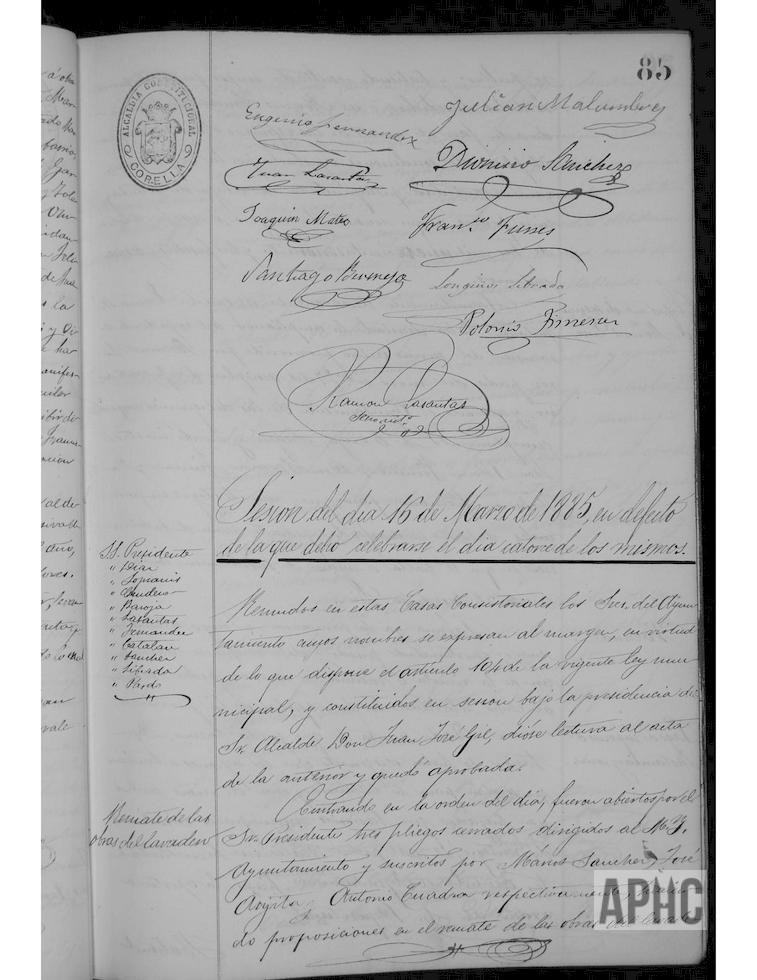 85
ALCALDIA CONSTITUCIONAL
CORELLA
Eugenio Fernandez
Julian Malumbres
Juan Lasantas
Dionisio Sanchez
Joaquin Mateo
Fran.co Funes
Santiago Bermejo
Longinos Librada
Polonio Jimenez
Ramon Lasantas
Secret.o
Sesion del dia 16 de Marzo de 1885, en defecto
de la que debio celebrarse el dia catorce de los mismos.
SS. Presidente
" Diaz
" Sopranis
" Baroja
" Lasantas
" Fernandez
" Catalan
" Sanchez
" Librada
" Pardo
Reunidos en estas Casas Consistoriales los Sres. del Ayun-
tamiento cuyos nombres se expresan al margen, en virtud
de lo que dispone el artículo 104 de la vigente ley mu-
nicipal, y constituidos en sesion bajo la presidencia del
Sr. Alcalde Don Juan José Gil, dióse lectura al acta
de la anterior y quedó aprobada.
Remate de las
obras del lavadero
Entrando en la orden del dia, fueron abiertos por el
Sr. Presidente tres pliegos cerrados dirigidos al M. Y.
Ayuntamiento y suscritos por Sanchez, José
Antonio Cuadra respectivamente,
do proposiciones en el remate de las obras del
APHC